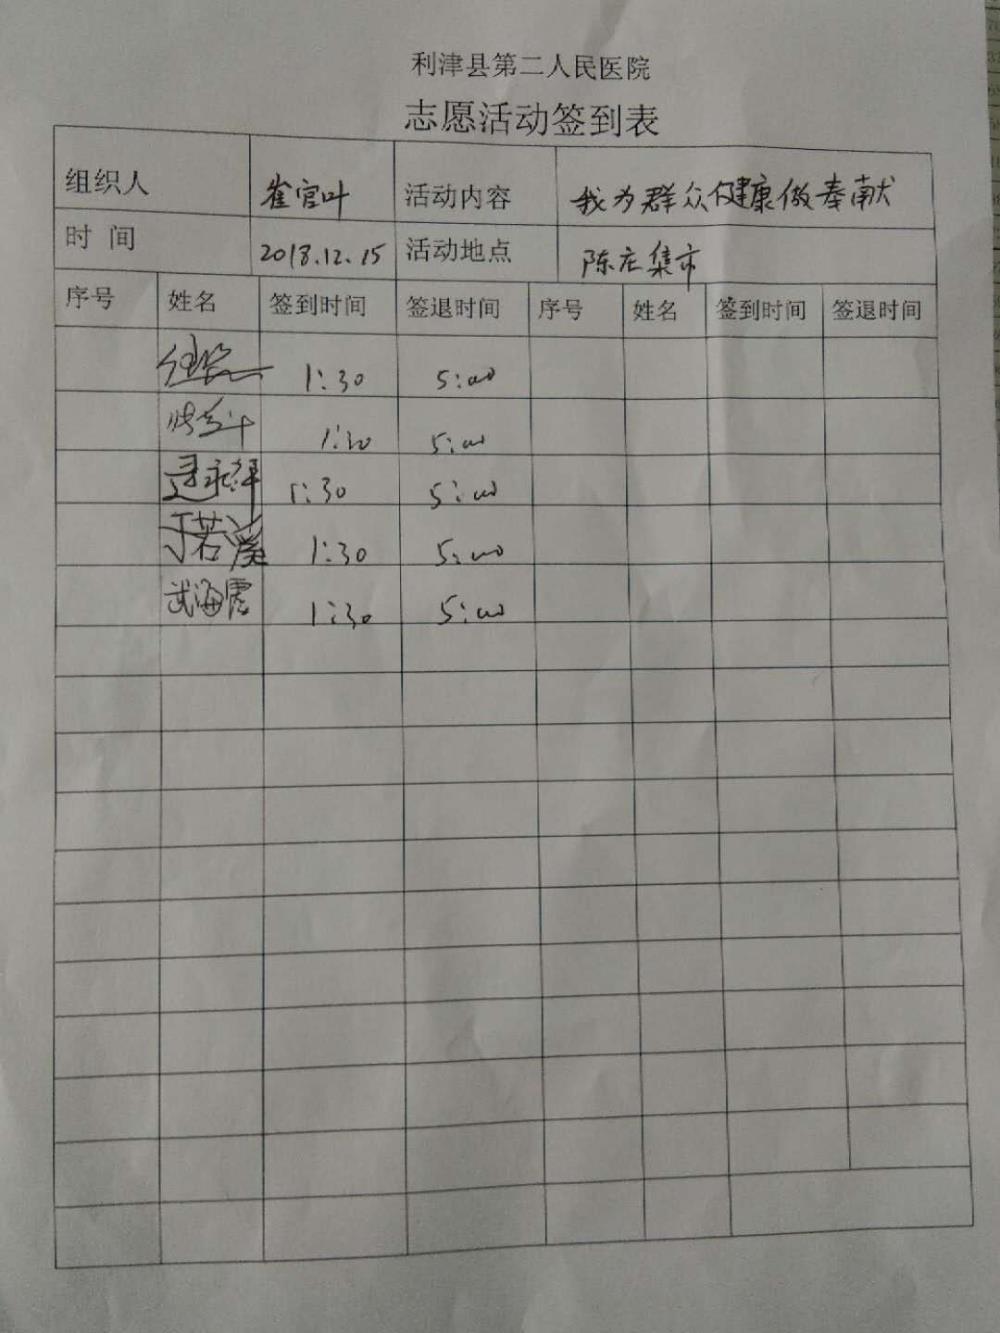 利津县第二人民医院
志愿活动签到表
组织人 崔官叶 活动内容 我为群众健康做奉献
时 间 2018.12.15 活动地点 陈庄集市
序号 姓名 签到时间 签退时间 序号 姓名 签到时间 签退时间
1:30 5:00
1:30 5:00
1:30 5:00
于若 1:30 5:00
武海霞 1:30 5:00